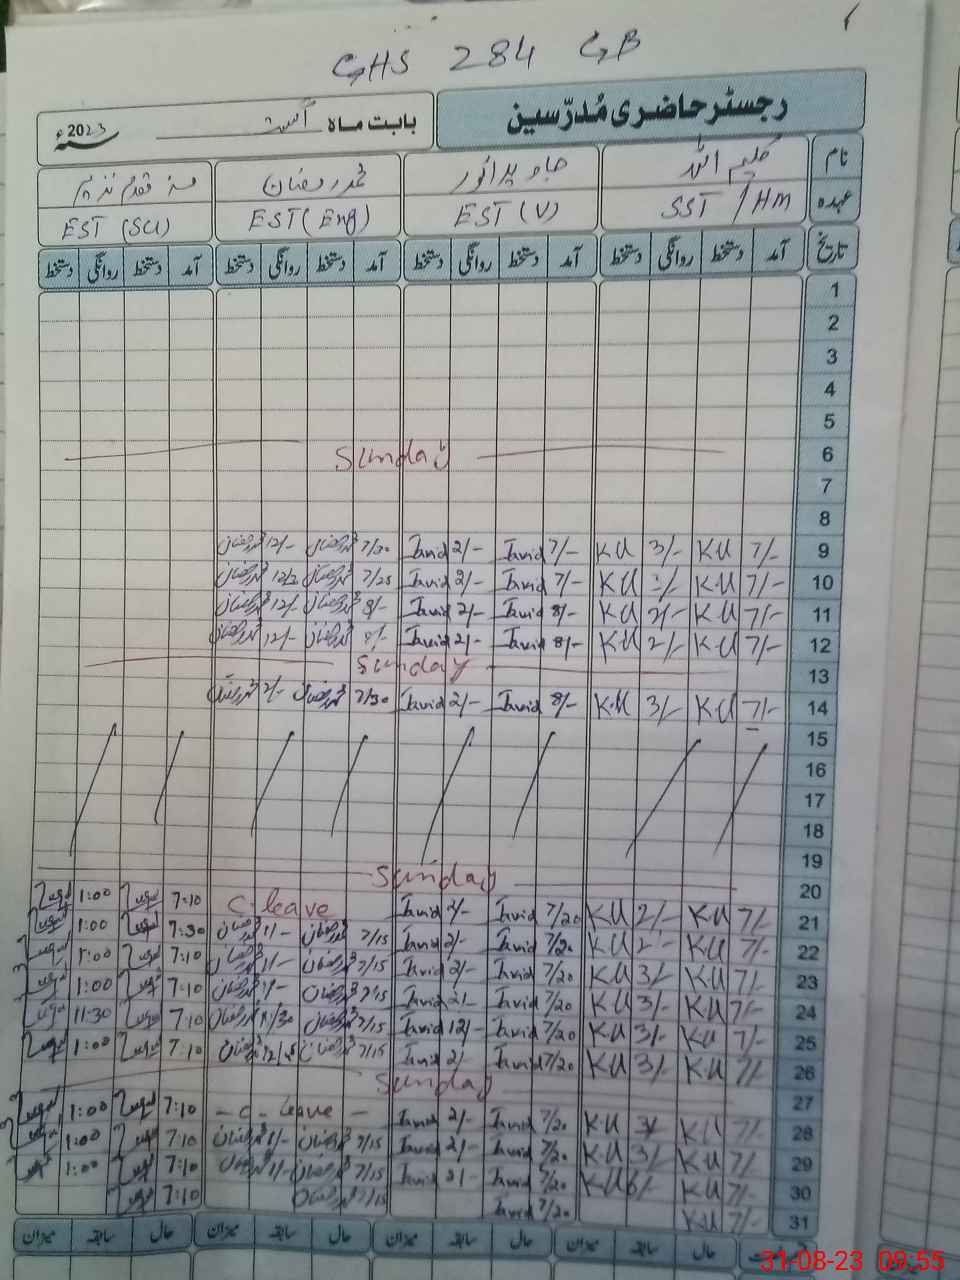 GHS 284 GB
رجسٹر حاضری مُدرّسین
بابت ماہ اگست 2023ء
نام کلیم اللہ جاوید انور محمد رمضان
عہدہ SST/HM EST (V) EST (Eng) EST (SCI)
تاریخ آمد دستخط روانگی دستخط آمد دستخط روانگی دستخط آمد دستخط روانگی دستخط آمد دستخط روانگی دستخط
1
2
3
4
5
6 Sunday
7
8
9 7/- KU 3/- KU 7/- Javid 2/- Javid 7/30 محمد رمضان 12/- محمد رمضان
10 7/- KU KU 7/- Javid 2/- Javid 7/25 محمد رمضان محمد رمضان
11 7/- KU 2/- KU 8/- Javid 2/- Javid 8/- محمد رمضان 12/- محمد رمضان
12 7/- KU 2/- KU 8/- Javid 2/- Javid 8/- محمد رمضان 12/- محمد رمضان
13 Sunday
14 7/- KU 3/- KU 8/- Javid 2/- Javid 7/30 محمد رمضان 2/- محمد رمضان
15
16
17
18
19
20 Sunday
21 7/- KU 2/- KU 7/20 Javid 2/- Javid C-leave 7:10 1:00
22 7/- KU 2- KU 7/20 Javid 2/- Javid 7/15 محمد رمضان 1/- محمد رمضان 7:30 1:00
23 7/- KU 3/- KU 7/20 Javid 2/- Javid 7/15 محمد رمضان 1/- محمد رمضان 7:10 1:00
24 7/- KU 3/- KU 7/20 Javid 2/- Javid 7/15 محمد رمضان 1/- محمد رمضان 7:10 1:00
25 7/- KU 3/- KU 7/20 Javid 12/- Javid 7/15 محمد رمضان محمد رمضان 7:10 11:30
26 7/- KU 3/- KU 7/20 Javid 2/- Javid 7/15 محمد رمضان محمد رمضان 7:10 1:00
27 Sunday
28 7/- KU 3/- KU 7/20 Javid 2/- Javid - C - leave - 7:10 1:00
29 7/- KU 3/- KU 7/20 Javid 2/- Javid 7/15 محمد رمضان 1/- محمد رمضان 7:10 1:00
30 7/- KU KU 7/20 Javid 2/- Javid 7/15 محمد رمضان 1/- محمد رمضان 7:10 1:00
31 7/- KU 7/20 Javid 7/15 محمد رمضان 7:10
حال سابقہ میزان حال سابقہ میزان حال سابقہ میزان حال سابقہ میزان
31-08-23 09:55